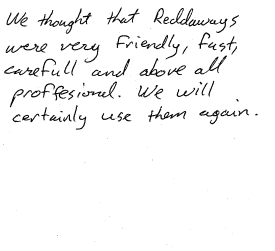 We thought that Reddaways
were very Friendly, fast,
carefull and above all
proffesional. We will
certainly use them again.